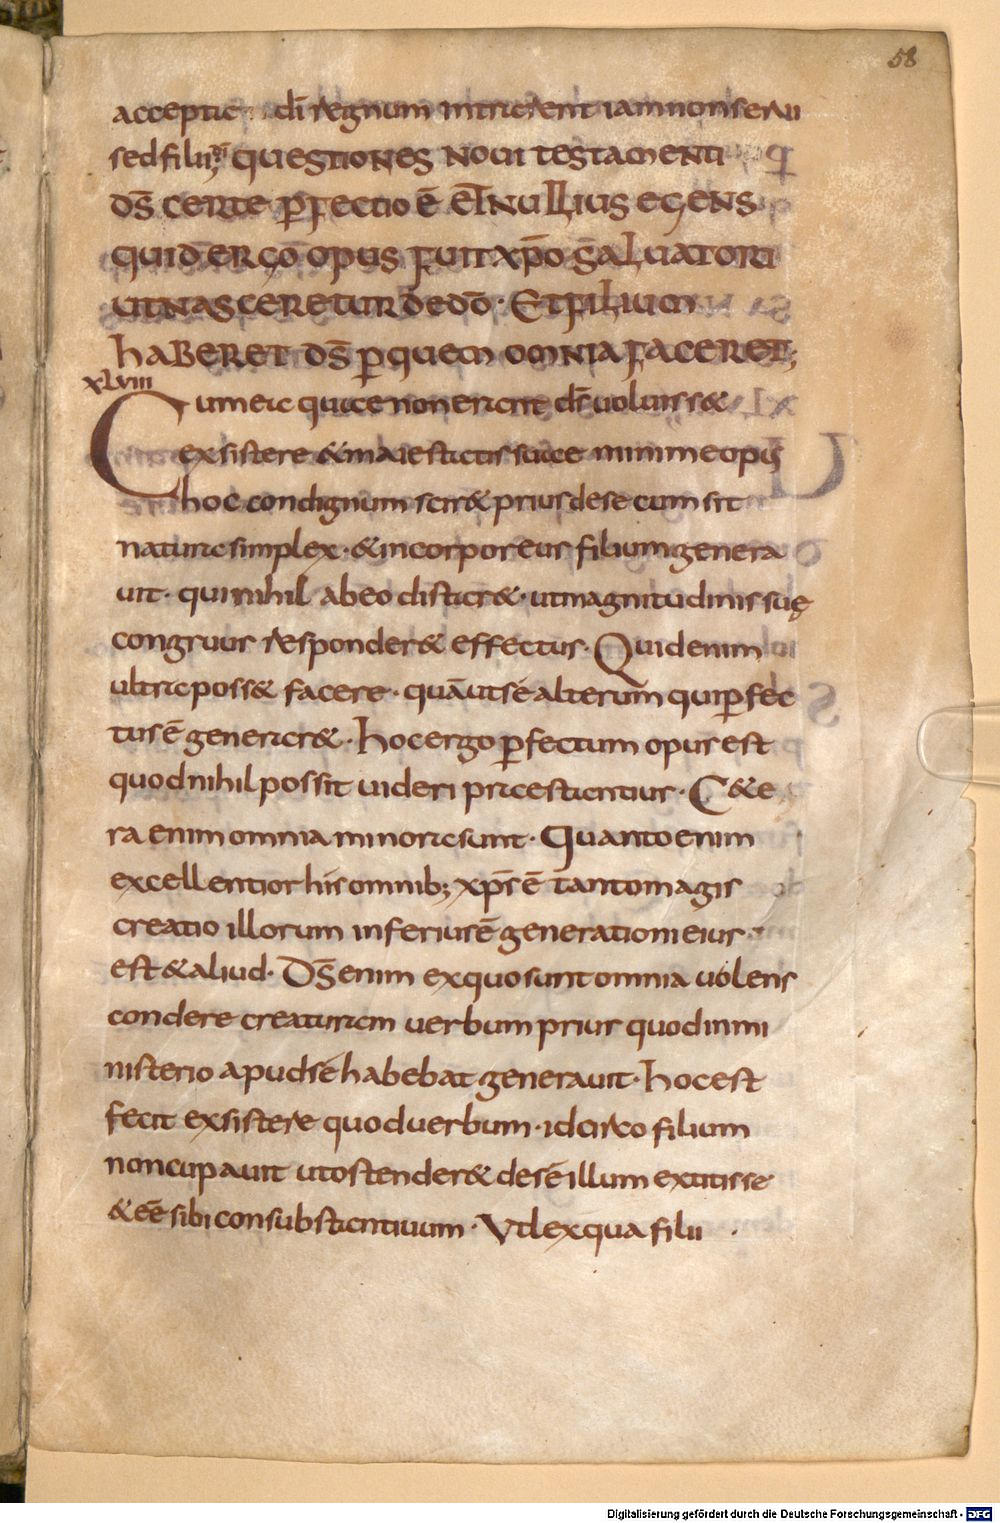 58
accepta di regnum intrarent iam non serui
sed filii; questiones noui testamenti
ds̄ certe p̱fectio ē et nullius egens
quid ergo opus fuit xp̄o saluatori
ut nasceretur de dō · Et filium
haberet ds̄ p̱ quem omnia faceret;
xLviii
Cum ea quae non erant dī uoluisset
exsistere & maiestatis suae minime opus
hoc condignum sciret prius de se cum sit
natura simplex · & incorporeus filium genera
uit · qui nihil ab eo distaret · ut magnitudinis suę
congruus responderet effectus · Quid enim
ultra posset facere · quā ut sē alterum qui p̱fec
tus ē generaret · hoc ergo p̱fectum opus est
quod nihil possit uideri praestantius · Cete
ra enim omnia minora sunt · Quanto enim
excellentior his omnib; xp̄s ē tanto magis
creatio illorum inferius ē generationi eius
est & aliud · Ds̄ enim ex quo sunt omnia uolens
condere creaturam uerbum prius quod in mi
nisterio apud sē habebat generauit · hoc est
fecit exsistere quod uerbum · idcirco filium
noncupauit ut ostenderet de sē illum extitisse
& eē sibi consubstantiuum · Vt ex qua filii
Digitalisierung gefördert durch die Deutsche Forschungsgemeinschaft - DFG